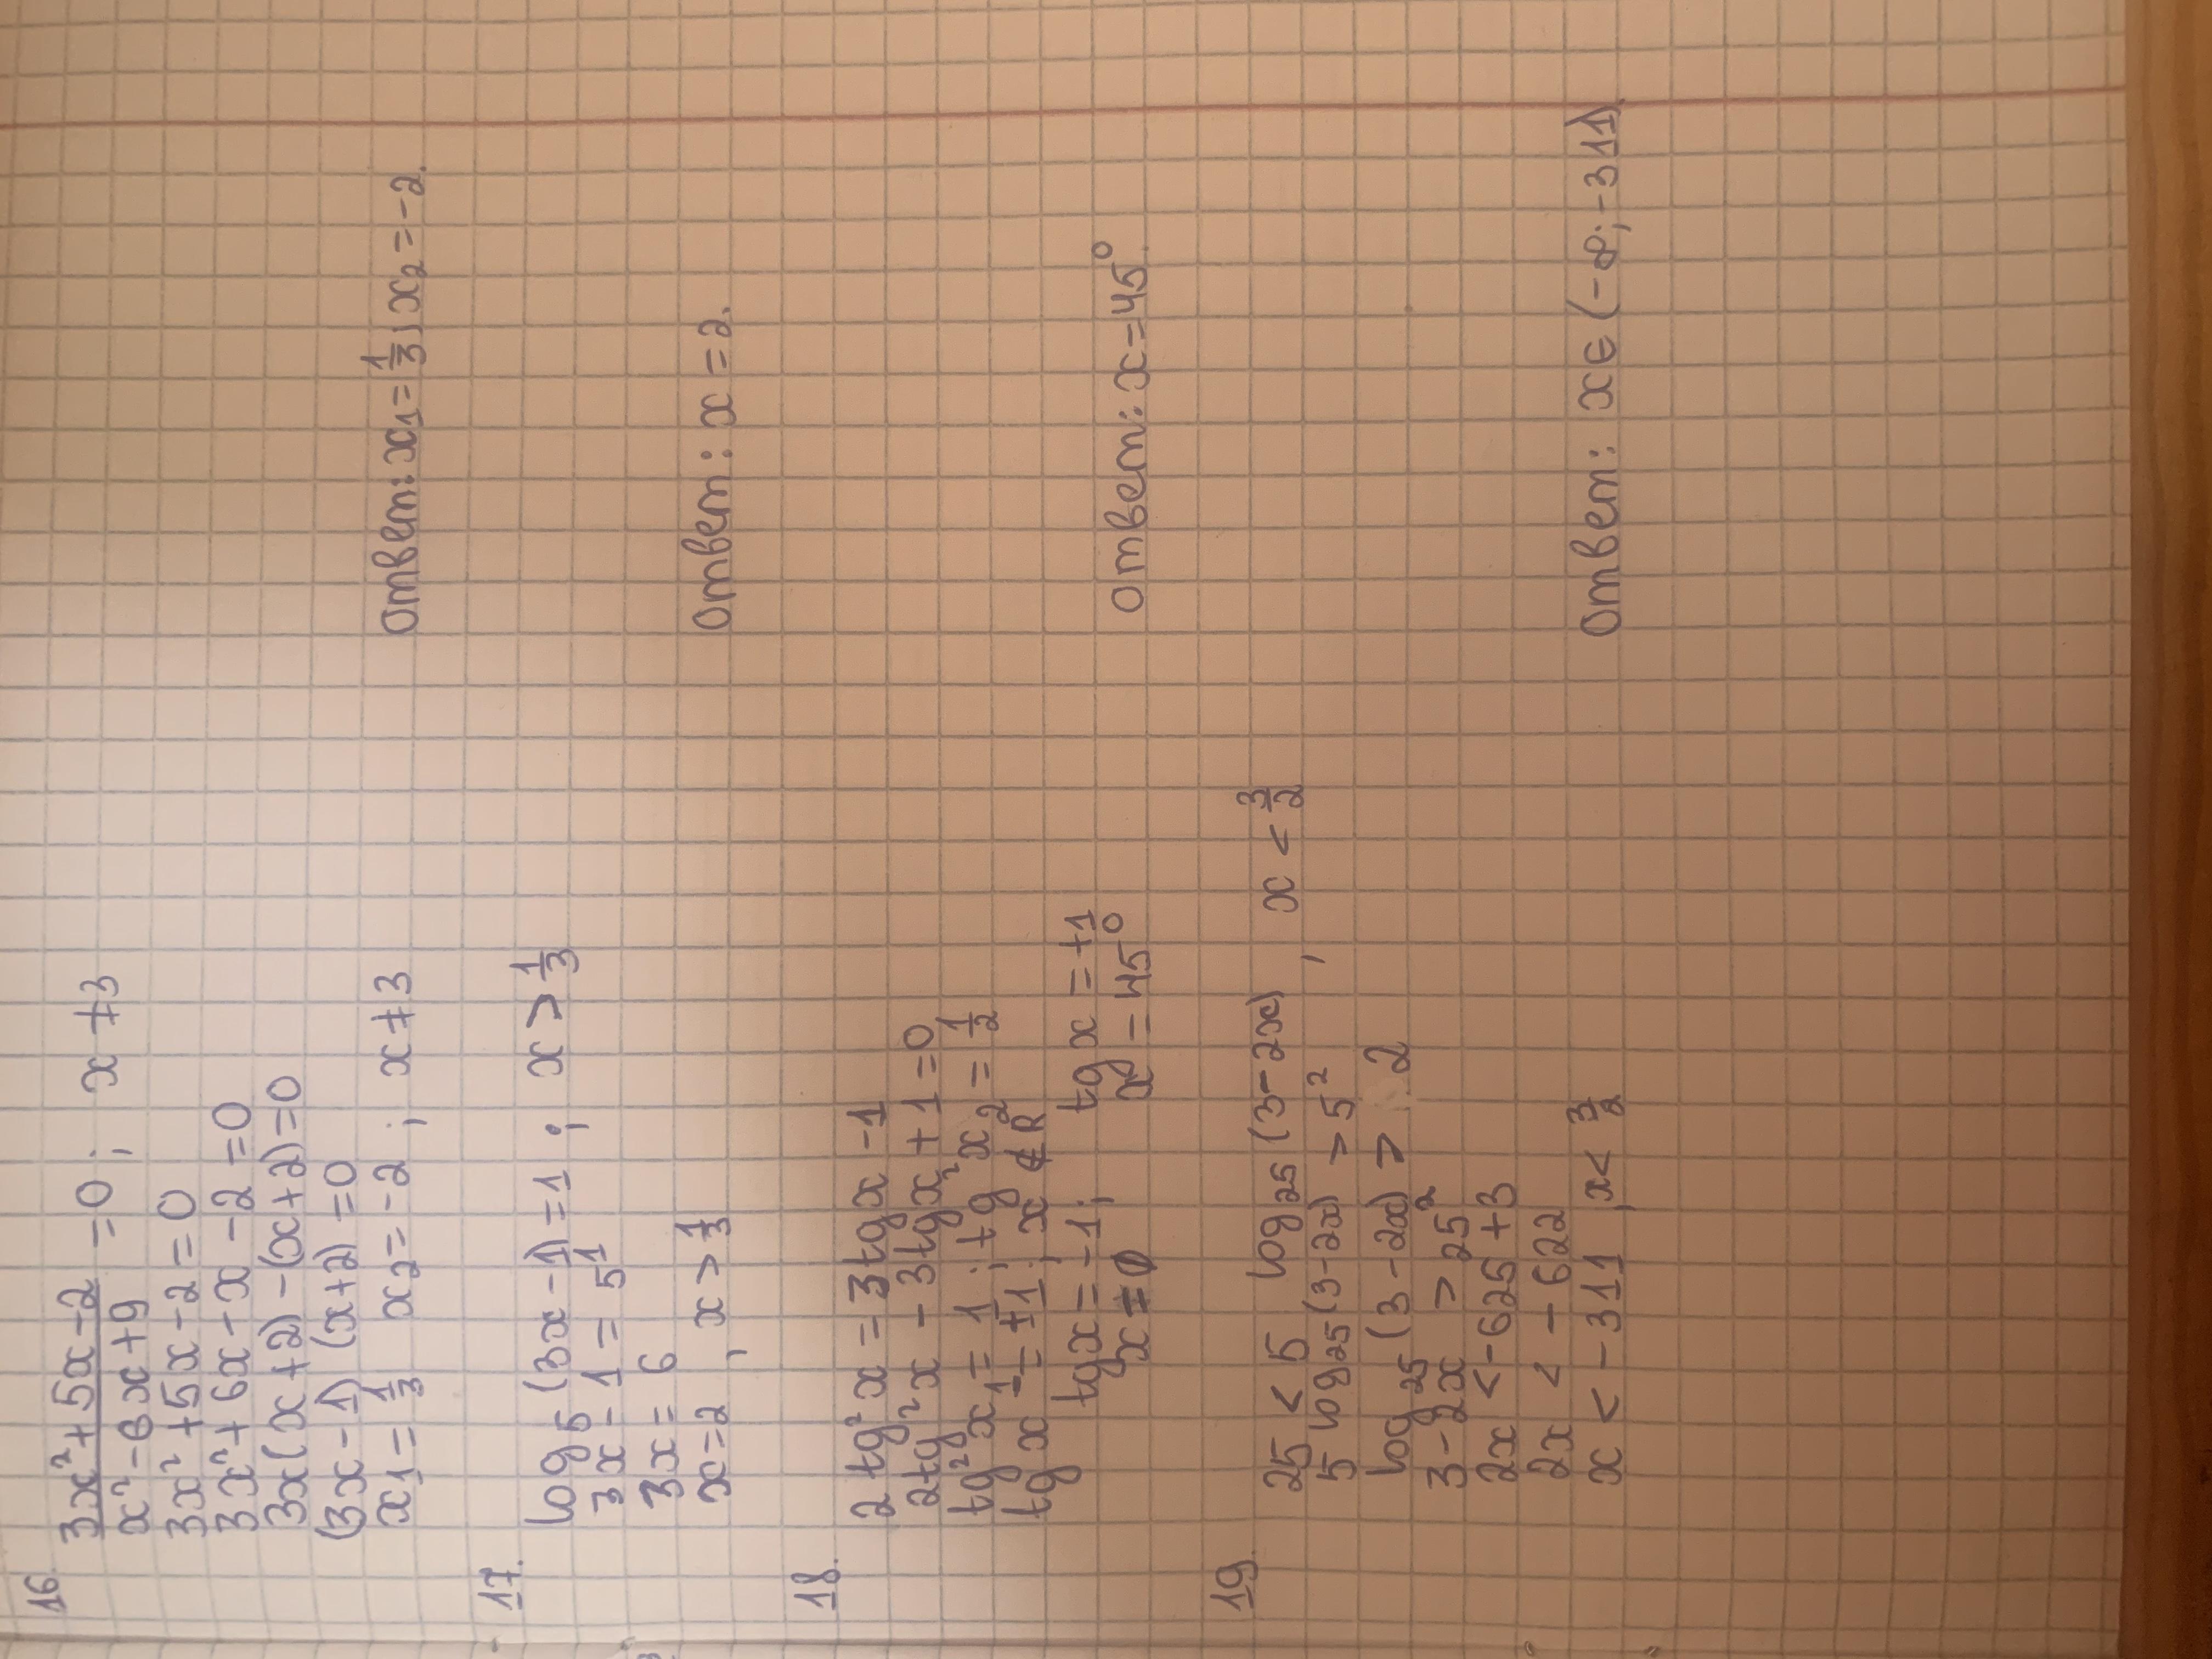 16.
3x²+5x-2 / x²-6x+9 = 0; x ≠ 3
3x²+5x-2=0
3x²+6x-x-2=0
3x(x+2)-(x+2)=0
(3x-1)(x+2)=0
x₁=1/3 x₂=-2; x≠3
Ответ: x₁=1/3; x₂=-2.
17.
log₅(3x-1)=1; x>1/3
3x-1=5¹
3x=6
x=2, x>1/3
Ответ: x=2.
18.
2tg²x=3tgx-1
2tg²x-3tgx+1=0
tg²x₁=1; tg²x₂=1/2
tgx=±1; x∉R
tgx=-1; tgx=+1
x≠∅ x=45°
Ответ: x=45°.
19.
25 < 5 log₂₅(3-2x), x<3/2
5 log₂₅(3-2x) > 5²
log₂₅(3-2x) > 2
3-2x > 25²
2x < -625+3
2x < -622
x < -311, x<3/2
Ответ: x∈(-∞;-311)